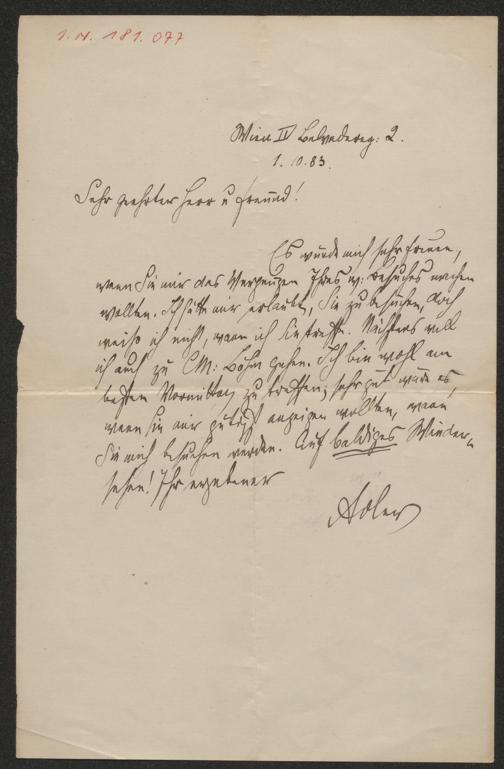 I. N. 181.077
Wien IV Belvedereg: 2.
1.10.83.
Sehr geehrter Herr u Freund!
Es würde mich sehr freuen,
wenn Sie mir das Vergnügen Ihres Besuches machen
wollten. Ich hätte mir erlaubt, Sie zu besuchen, doch
weiss ich nicht, wann ich Sie treffe. Nächstens will
ich auch zu CM: Böhm gehen. Ich bin wohl am
besten Vormittag zu treffen; sehr gut wäre es,
wenn Sie mir gütigst anzeigen wollten, wann
Sie mich besuchen werden. Auf baldiges Wieder-
sehen! Ihr ergebener
Adler